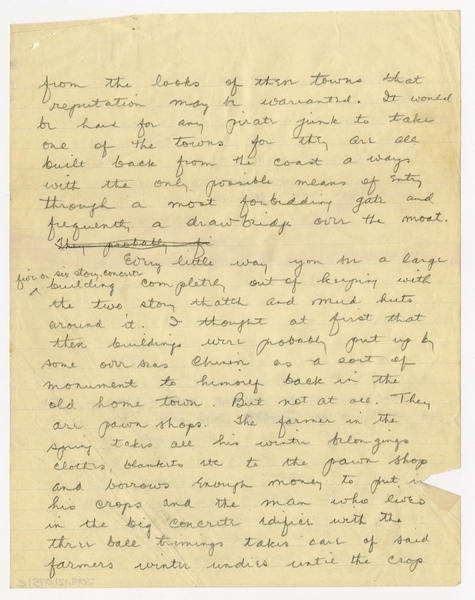 from the looks of these towns that
reputation may be warranted. It would
be hard for any pirate junk to take
one of the towns for they are all
built back from the coast a ways
with the only possible means of entry
through a most forbidding gate and
frequently a drawbridge over the moat.
They probably of
Every little way you see a large
five or six story, concrete
building completely out of keeping with
the two story thatch and mud huts
around it. I thought at first that
these buildings were probably put up by
some over seas Chinese as a sort of
monument to himself back in the
old home town. But not at all. They
are pawn shops. The farmer in the
spring takes all his winter belongings
clothes, blankets etc to the pawn shop
and borrows enough money to put in
his crops and the man who lives
in the big concrete edifice with the
three ball trimings takes care of said
farmers winter undies until the crop